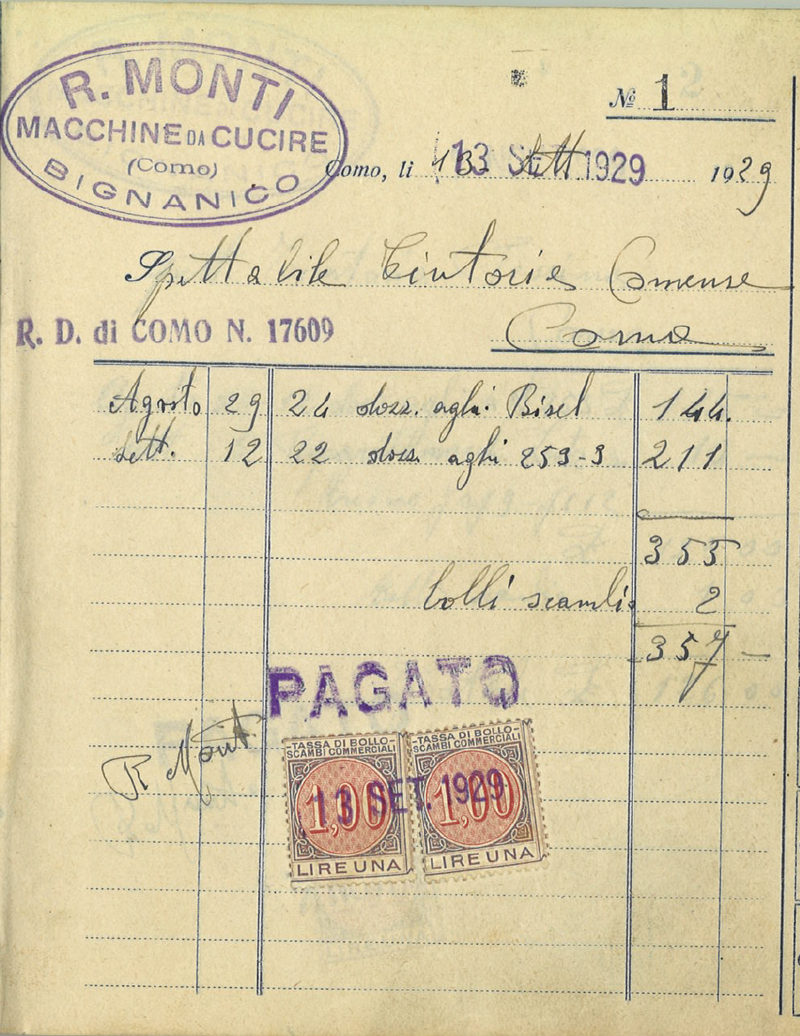 R. MONTI
MACCHINE DA CUCIRE
(Como)
BIGNANICO
№ 1
Como, li 13 Sett. 13 SET. 1929 1929
Spettabile Tintoria Comense
R. D. di COMO N. 17609
Como
Agosto 29 24 dozz. aghi Bisel 144.
Sett. 12 22 dozz. aghi 253-3 211
355
bolli scambio 2
357 —
PAGATO
R Monti
TASSA DI BOLLO SCAMBI COMMERCIALI
1,00
LIRE UNA
TASSA DI BOLLO SCAMBI COMMERCIALI
1,00
LIRE UNA
13 SET. 1929